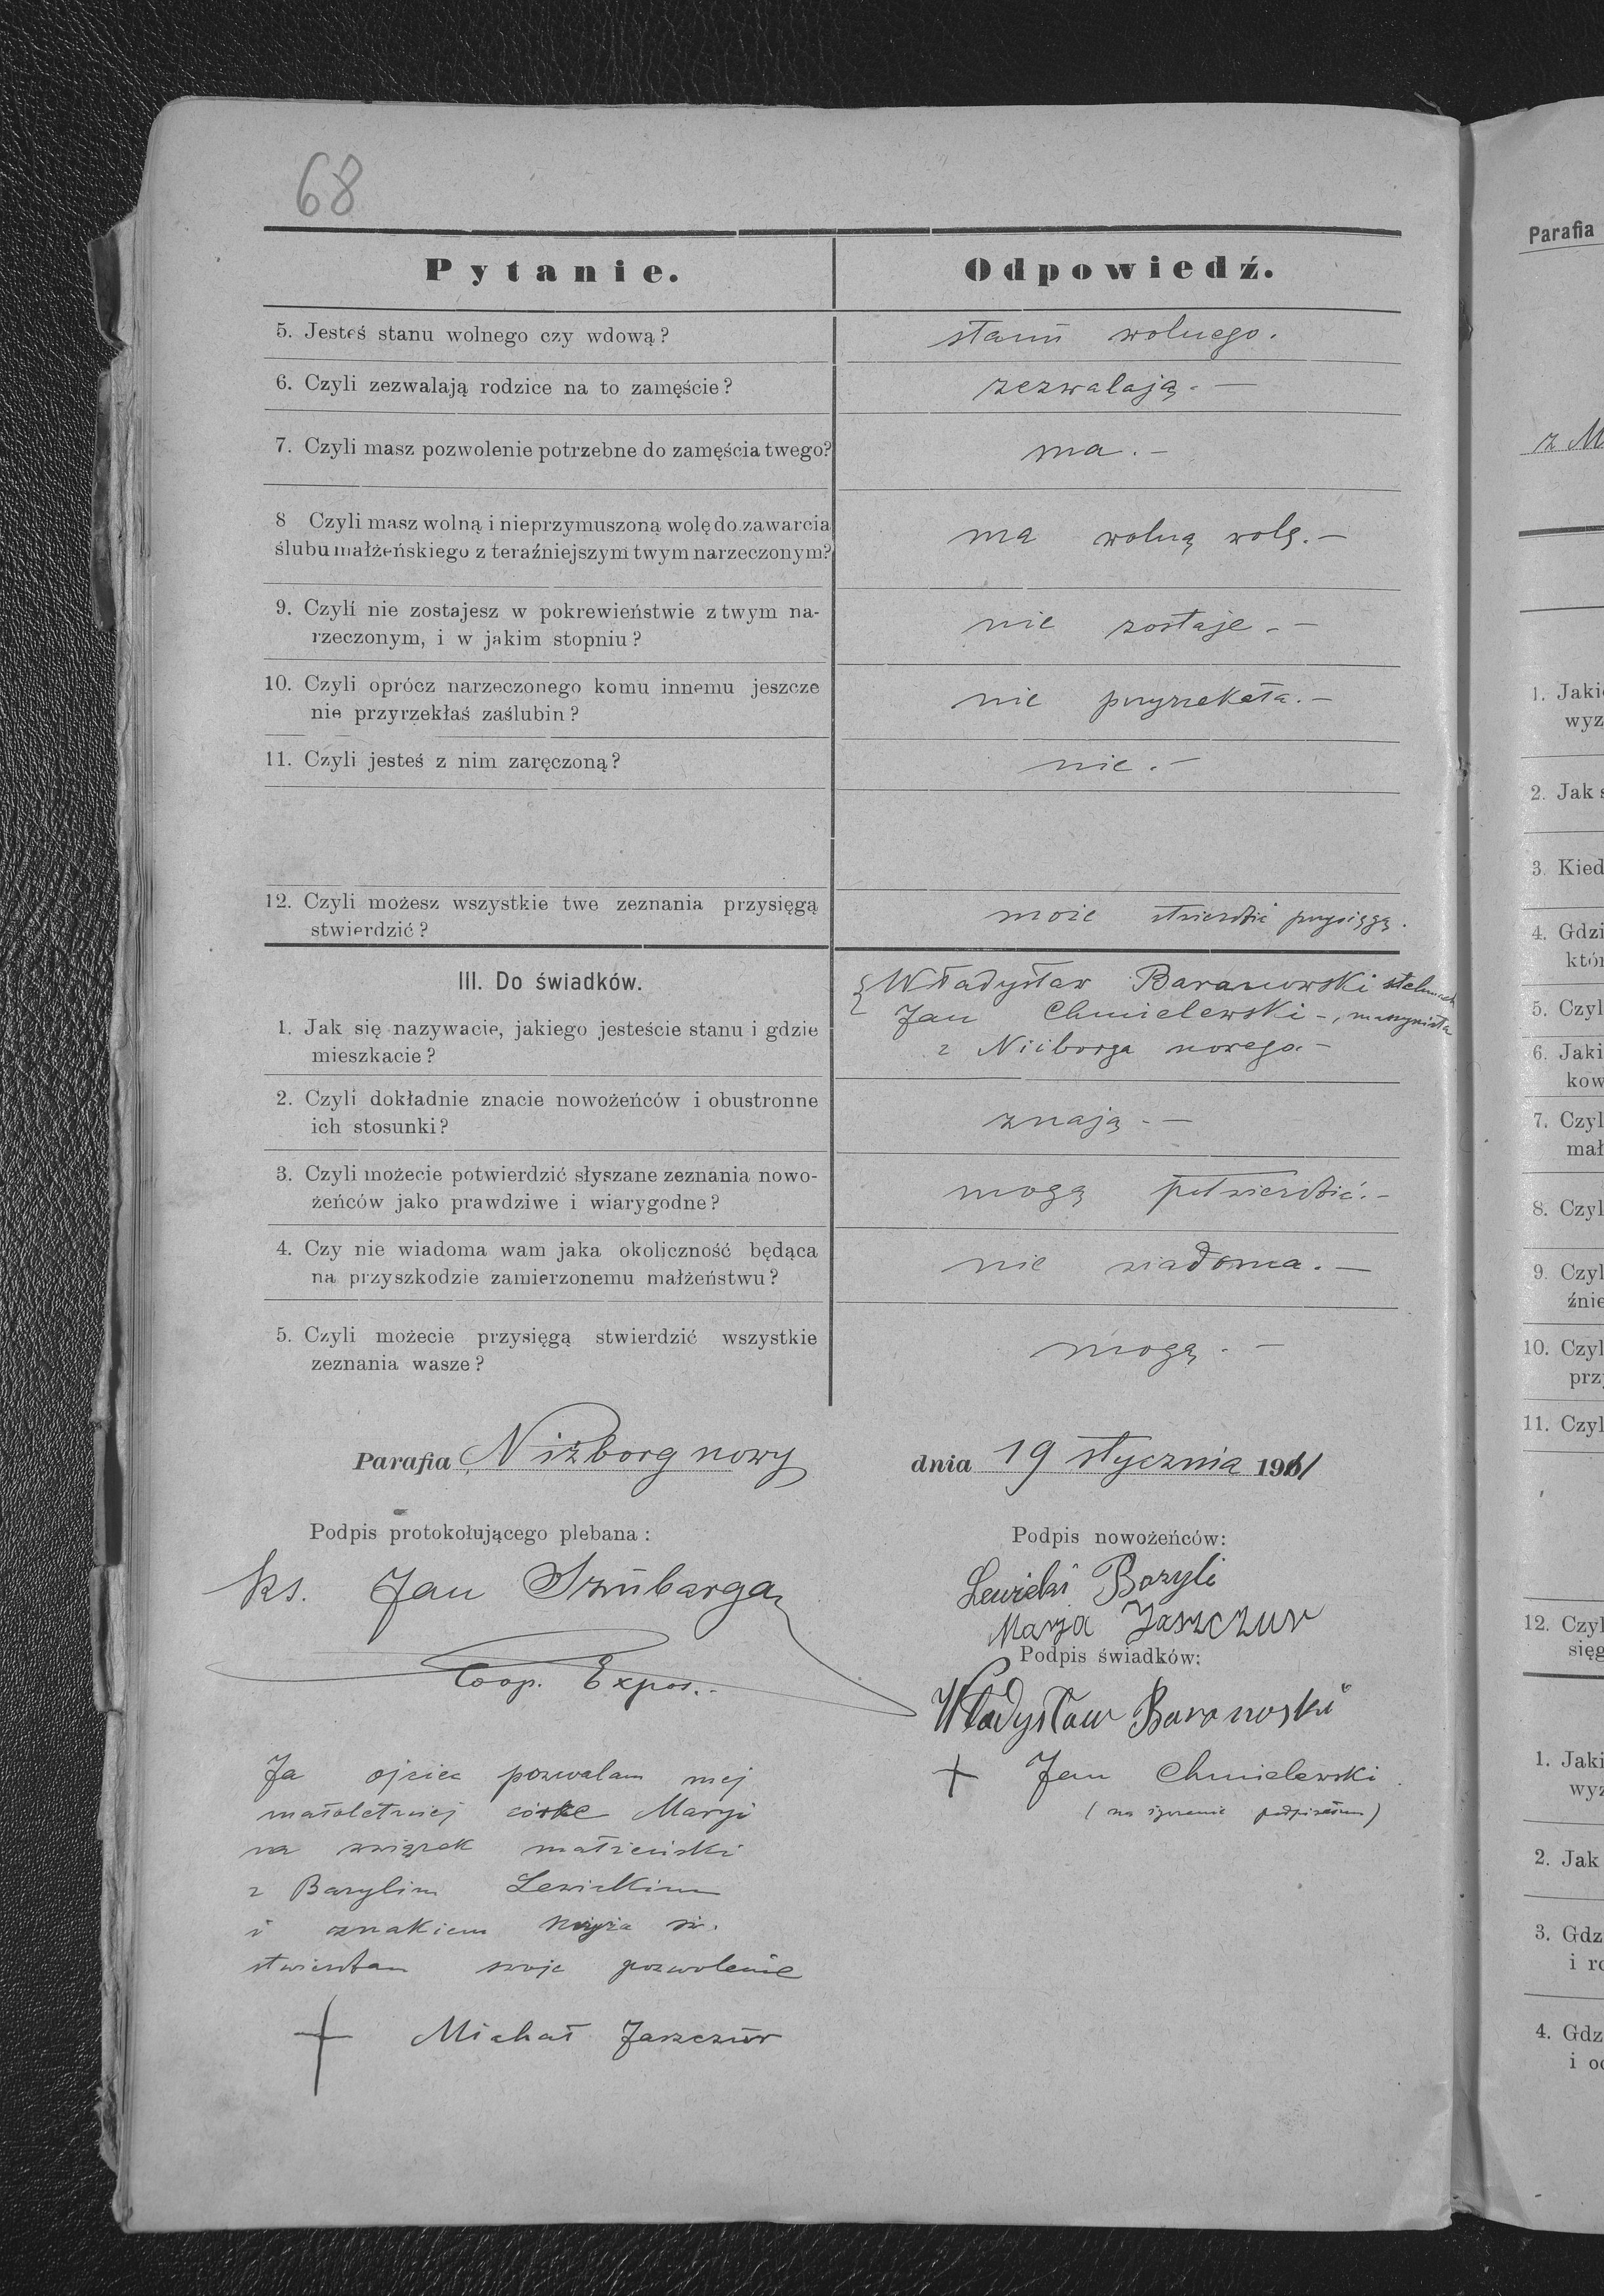 68
Pytanie.
Odpowiedź.
5. Jesteś stanu wolnego czy wdową?
stanu wolnego.
6. Czyli zezwalają rodzice na to zamęście?
zezwalają. —
7. Czyli masz pozwolenie potrzebne do zamęścia twego?
ma. —
8 Czyli masz wolną i nieprzymuszoną wolę do zawarcia
ślubu małżeńskiego z teraźniejszym twym narzeczonym?
ma wolną wolę. —
9. Czyli nie zostajesz w pokrewieństwie z twym na-
rzeczonym, i w jakim stopniu?
nie zostaje. —
10. Czyli oprócz narzeczonego komu innemu jeszcze
nie przyrzekłaś zaślubin?
nie przyrzekała. —
11. Czyli jesteś z nim zaręczoną?
nie. —
12. Czyli możesz wszystkie twe zeznania przysięgą
stwierdzić?
może stwierdzić przysięgą.
III. Do świadków.
1. Jak się nazywacie, jakiego jesteście stanu i gdzie
mieszkacie?
Władysław Baranowski stelmach
Jan Chmielewski —, maszynista
z Niżborga nowego. —
2. Czyli dokładnie znacie nowożeńców i obustronne
ich stosunki?
znają. —
3. Czyli możecie potwierdzić słyszane zeznania nowo-
żeńców jako prawdziwe i wiarygodne?
mogą potwierdzić. —
4. Czy nie wiadoma wam jaka okoliczność będąca
na przyszkodzie zamierzonemu małżeństwu?
nie wiadoma. —
5. Czyli możecie przysięgą stwierdzić wszystkie
zeznania wasze?
mogą. —
Parafia Niżborg nowy
dnia 19 stycznia 1911
Podpis protokołującego plebana:
ks. Jan Szubarga
Coop. Expos. —
Podpis nowożeńców:
Lewicki Bazyli
Marya Jaszczur
Podpis świadków:
Władysław Baranoski
+ Jan Chmielewski
(na życzenie podpisałem)
Ja ojciec pozwalam mej
małoletniej córke Maryi
na związek małżeński
z Bazylim Lewickim
i znakiem krzyża św.
stwierdzam swoje pozwolenie
+ Michał Jaszczur
Parafia
z M
1. Jaki
wyz
2. Jak s
3. Kied
4. Gdzi
któr
5. Czyl
6. Jaki
kow
7. Czyl
mał
8. Czyl
9. Czyl
źnie
10. Czyl
prz
11. Czyl
12. Czyl
sięg
1. Jaki
wyz
2. Jak
3. Gdz
i ro
4. Gdz
i o